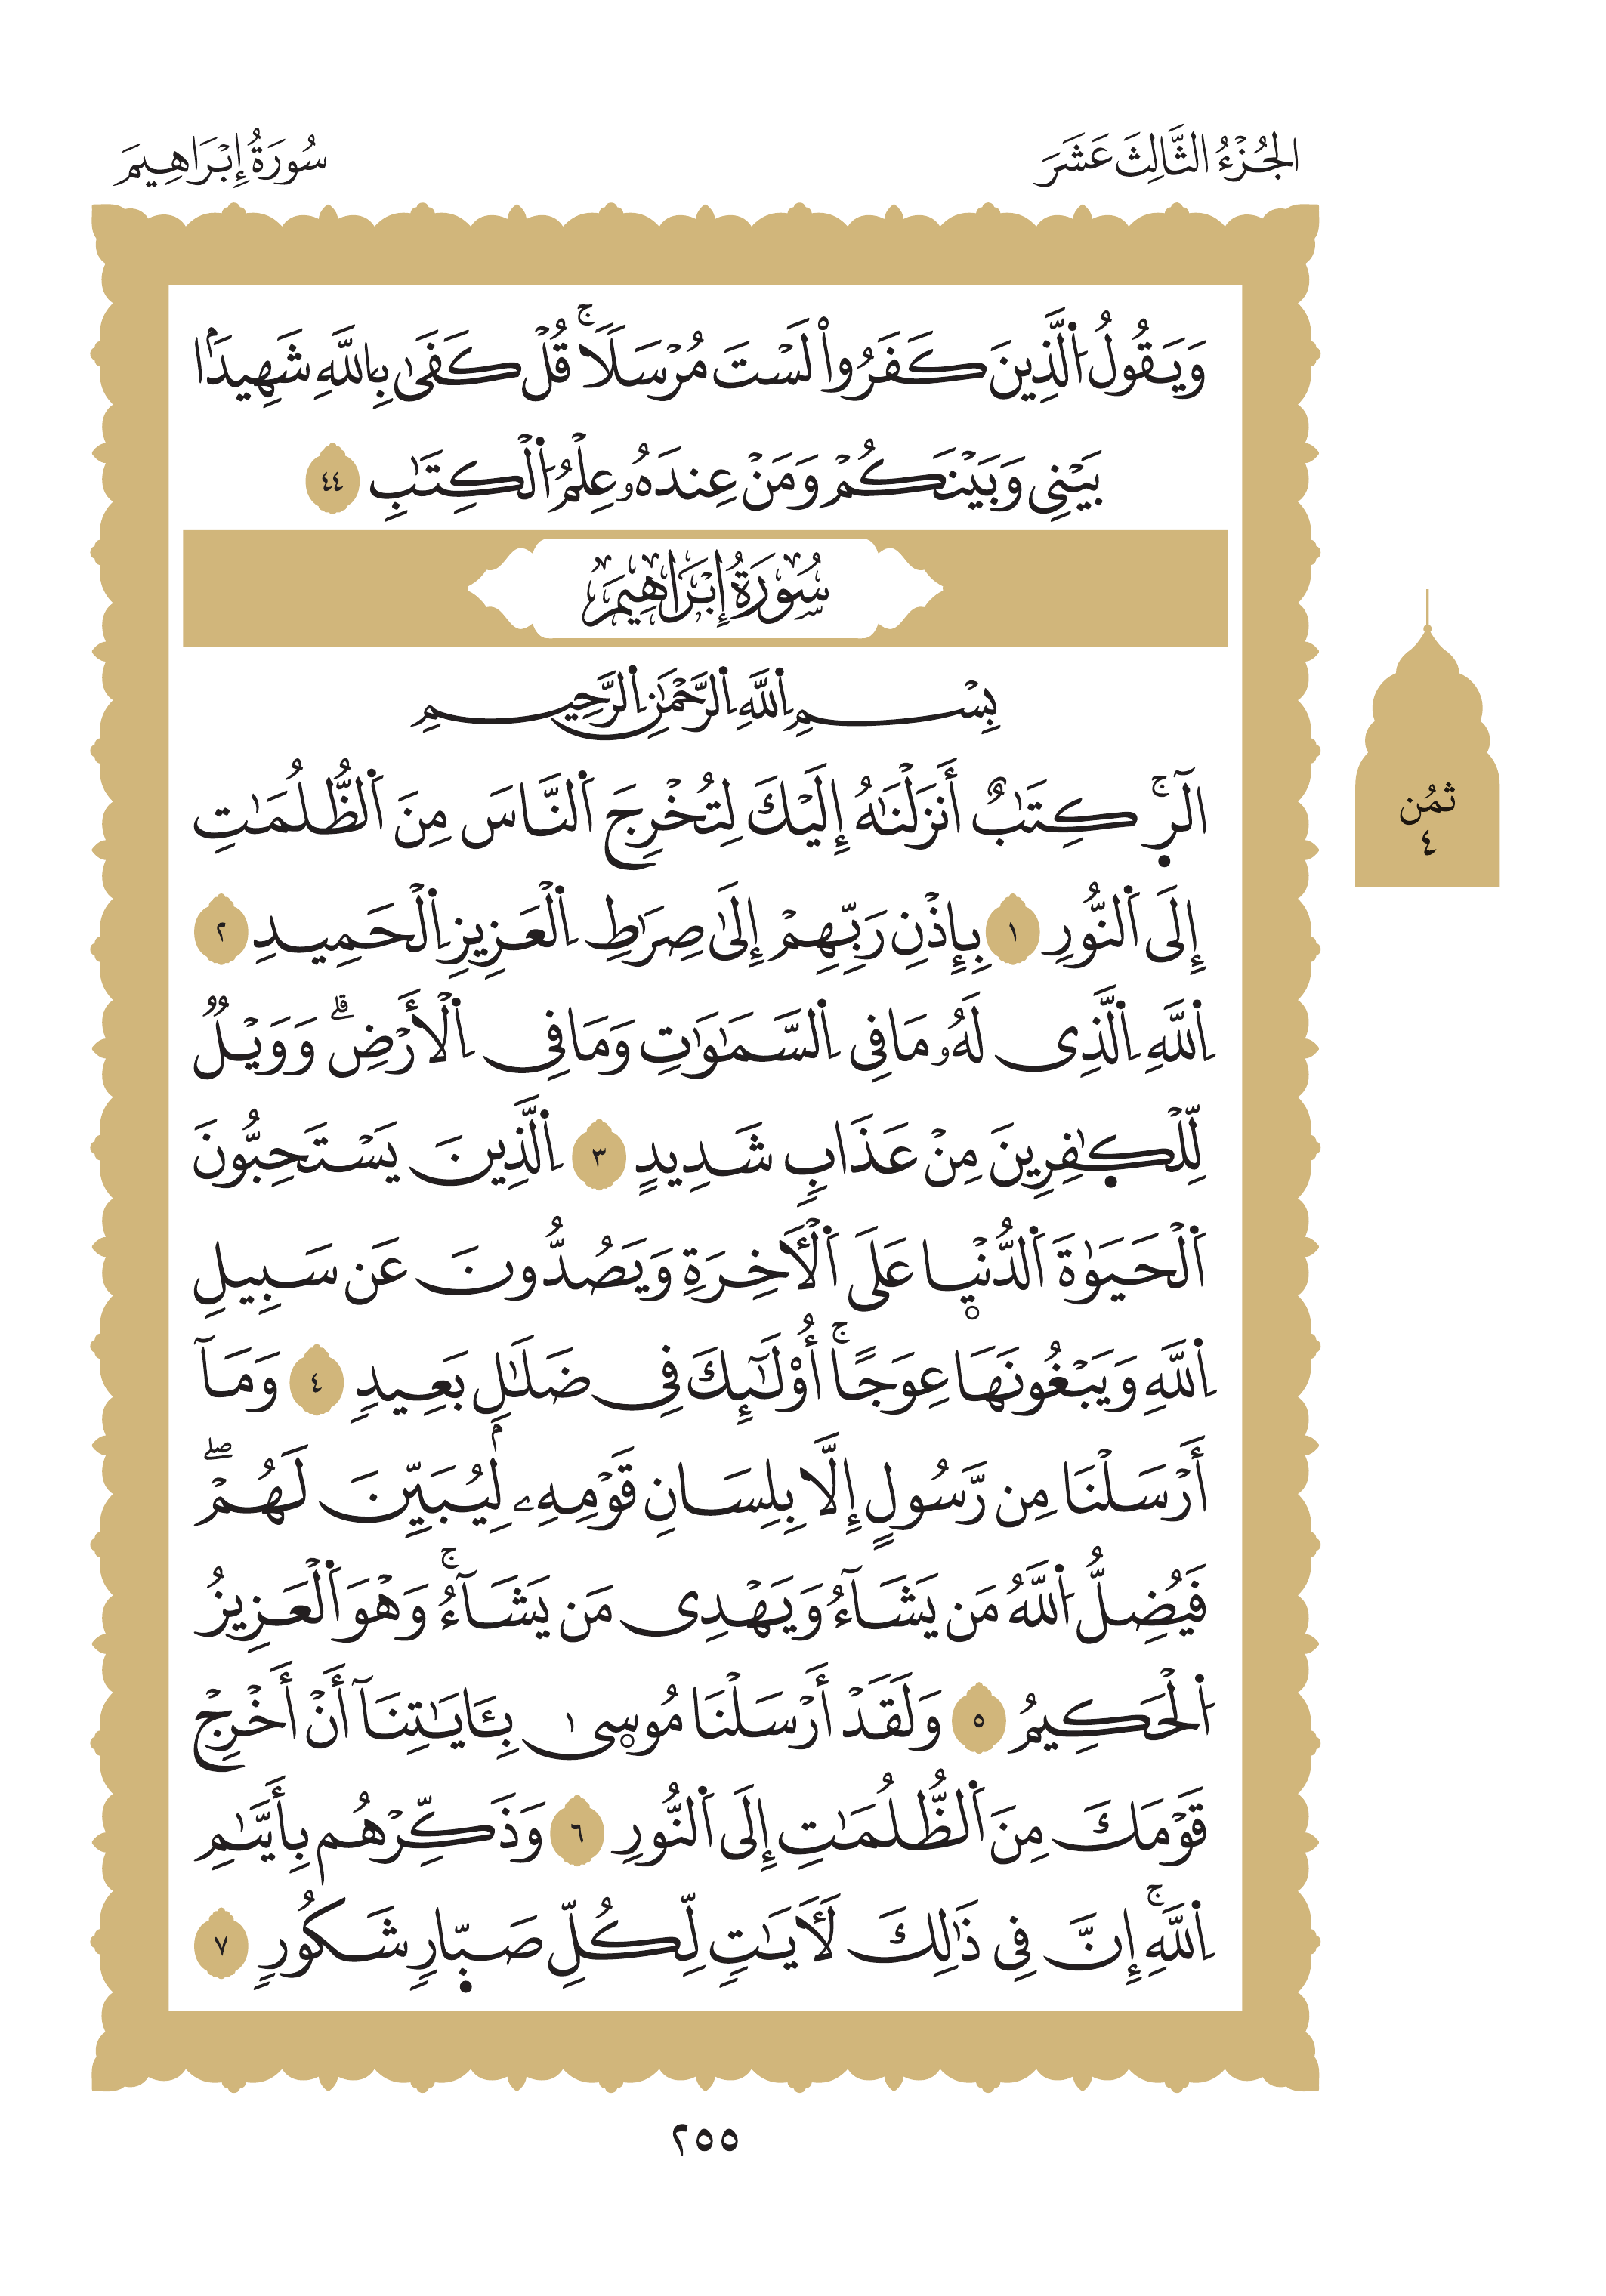 الجُزْءُ الثَّالِثَ عَشَرَ
سُورَةُ إِبْرَاهِيمَ
وَيَقُولُ اَ۬لَّذِينَ كَفَرُواْ لَسْتَ مُرْسَلاٗۖ قُلْ كَفَىٰ بِاللَّهِ شَهِيدَۢا
بَيْنِى وَبَيْنَكُمْ وَمَنْ عِندَهُۥ عِلْمُ اُ۬لْكِتَٰبِ ٤٤
سُورَةُ إِبْرَاهِيمَ
بِسْمِ اِ۬للَّهِ اِ۬لرَّحْمَٰنِ اِ۬لرَّحِيمِ
الٓر۪ۚ كِتَٰبٌ أَنزَلْنَٰهُ إِلَيْكَ لِتُخْرِجَ اَ۬لنَّاسَ مِنَ اَ۬لظُّلُمَٰتِ
إِلَى اَ۬لنُّورِ ١ بِإِذْنِ رَبِّهِمْ إِلَىٰ صِرَٰطِ اِ۬لْعَزِيزِ اِ۬لْحَمِيدِ ٢
اِ۬للَّهِ اِ۬لَّذِى لَهُۥ مَا فِى اِ۬لسَّمَٰوَٰتِ وَمَا فِى اِ۬لْأَرْضِۗ وَوَيْلٞ
لِّلْكٰ۪فِرِينَ مِنْ عَذَابٖ شَدِيدٍ ٣ اِ۬لَّذِينَ يَسْتَحِبُّونَ
اَ۬لْحَيَوٰةَ اَ۬لدُّنْي۪ا عَلَى اَ۬لْأٓخِرَةِ وَيَصُدُّونَ عَن سَبِيلِ
اِ۬للَّهِ وَيَبْغُونَهَا عِوَجًاۚ أُوْلَٰٓئِكَ فِى ضَلَٰلِۭ بَعِيدٖ ٤ وَمَآ
أَرْسَلْنَا مِن رَّسُولٍ إِلَّا بِلِسَانِ قَوْمِهِۦ لِيُبَيِّنَ لَهُمْۖ
فَيُضِلُّ اُ۬للَّهُ مَن يَشَآءُ وَيَهْدِى مَن يَشَآءُۚ وَهْوَ اَ۬لْعَزِيزُ
اُ۬لْحَكِيمُ ٥ وَلَقَدْ أَرْسَلْنَا مُوس۪ىٰ بِـَٔايَٰتِنَآ أَنْ أَخْرِجْ
قَوْمَكَ مِنَ اَ۬لظُّلُمَٰتِ إِلَى اَ۬لنُّورِ ٦ وَذَكِّرْهُم بِأَيَّىٰمِ
اِ۬للَّهِۚ إِنَّ فِى ذَٰلِكَ لَأٓيَٰتٖ لِّكُلِّ صَبّ۪ارٖ شَكُورٖ ٧
ثمُن
٤
٢٥٥